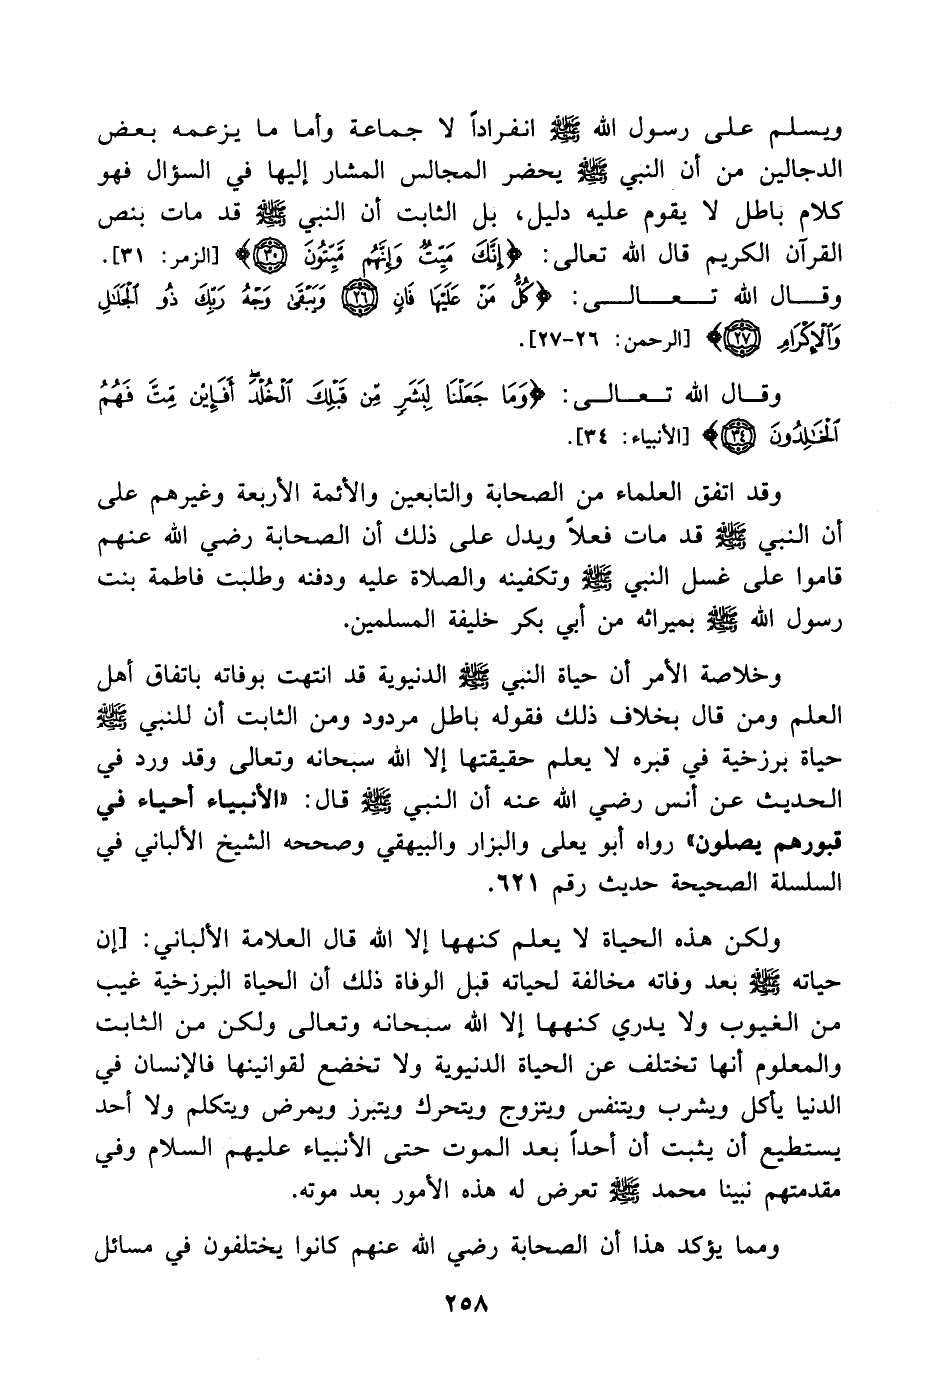 ويسلم على رسول الله ﷺ انفراداً لا جماعة وأما ما يزعمه بعض
الدجالين من أن النبي ﷺ يحضر المجالس المشار إليها في السؤال فهو
كلام باطل لا يقوم عليه دليل، بل الثابت أن النبي ﷺ قد مات بنص
القرآن الكريم قال الله تعالى: ﴿إِنَّكَ مَيِّتٌ وَإِنَّهُم مَّيِّتُونَ ٣٠﴾ [الزمر: ٣١].
وقال الله تعالى: ﴿كُلُّ مَنْ عَلَيْهَا فَانٍ ٢٦ وَيَبْقَىٰ وَجْهُ رَبِّكَ ذُو ٱلْجَلَٰلِ
وَٱلْإِكْرَامِ ٢٧﴾ [الرحمن: ٢٦-٢٧].
وقال الله تعالى: ﴿وَمَا جَعَلْنَا لِبَشَرٍ مِّن قَبْلِكَ ٱلْخُلْدَ أَفَإِيْن مِّتَّ فَهُمُ
ٱلْخَٰلِدُونَ ٣٤﴾ [الأنبياء: ٣٤].
وقد اتفق العلماء من الصحابة والتابعين والأئمة الأربعة وغيرهم على
أن النبي ﷺ قد مات فعلاً ويدل على ذلك أن الصحابة رضي الله عنهم
قاموا على غسل النبي ﷺ وتكفينه والصلاة عليه ودفنه وطلبت فاطمة بنت
رسول الله ﷺ بميراثه من أبي بكر خليفة المسلمين.
وخلاصة الأمر أن حياة النبي ﷺ الدنيوية قد انتهت بوفاته باتفاق أهل
العلم ومن قال بخلاف ذلك فقوله باطل مردود ومن الثابت أن للنبي ﷺ
حياة برزخية في قبره لا يعلم حقيقتها إلا الله سبحانه وتعالى وقد ورد في
الحديث عن أنس رضي الله عنه أن النبي ﷺ قال: «الأنبياء أحياء في
قبورهم يصلون» رواه أبو يعلى والبزار والبيهقي وصححه الشيخ الألباني في
السلسلة الصحيحة حديث رقم ٦٢١.
ولكن هذه الحياة لا يعلم كنهها إلا الله قال العلامة الألباني: [إن
حياته ﷺ بعد وفاته مخالفة لحياته قبل الوفاة ذلك أن الحياة البرزخية غيب
من الغيوب ولا يدري كنهها إلا الله سبحانه وتعالى ولكن من الثابت
والمعلوم أنها تختلف عن الحياة الدنيوية ولا تخضع لقوانينها فالإنسان في
الدنيا يأكل ويشرب ويتنفس ويتزوج ويتحرك ويتبرز ويمرض ويتكلم ولا أحد
يستطيع أن يثبت أن أحداً بعد الموت حتى الأنبياء عليهم السلام وفي
مقدمتهم نبينا محمد ﷺ تعرض له هذه الأمور بعد موته.
ومما يؤكد هذا أن الصحابة رضي الله عنهم كانوا يختلفون في مسائل
٢٥٨